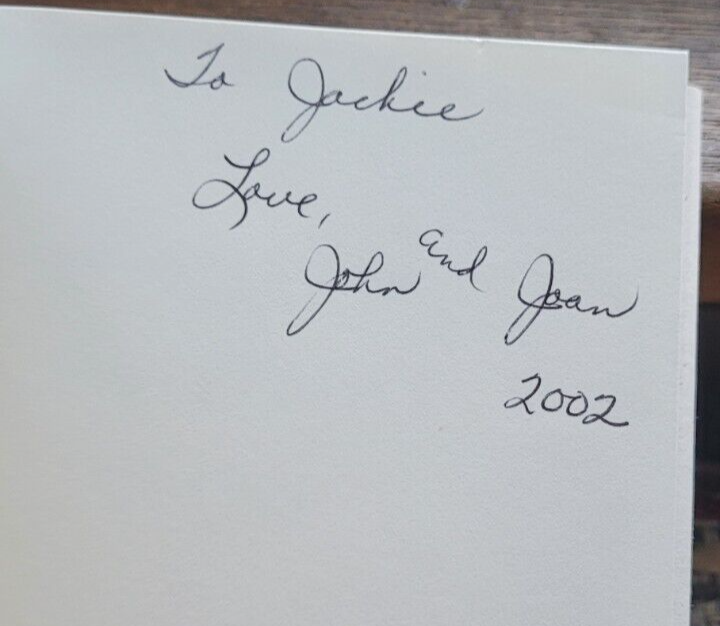 To Jackie
Love,
John and Joan
2002